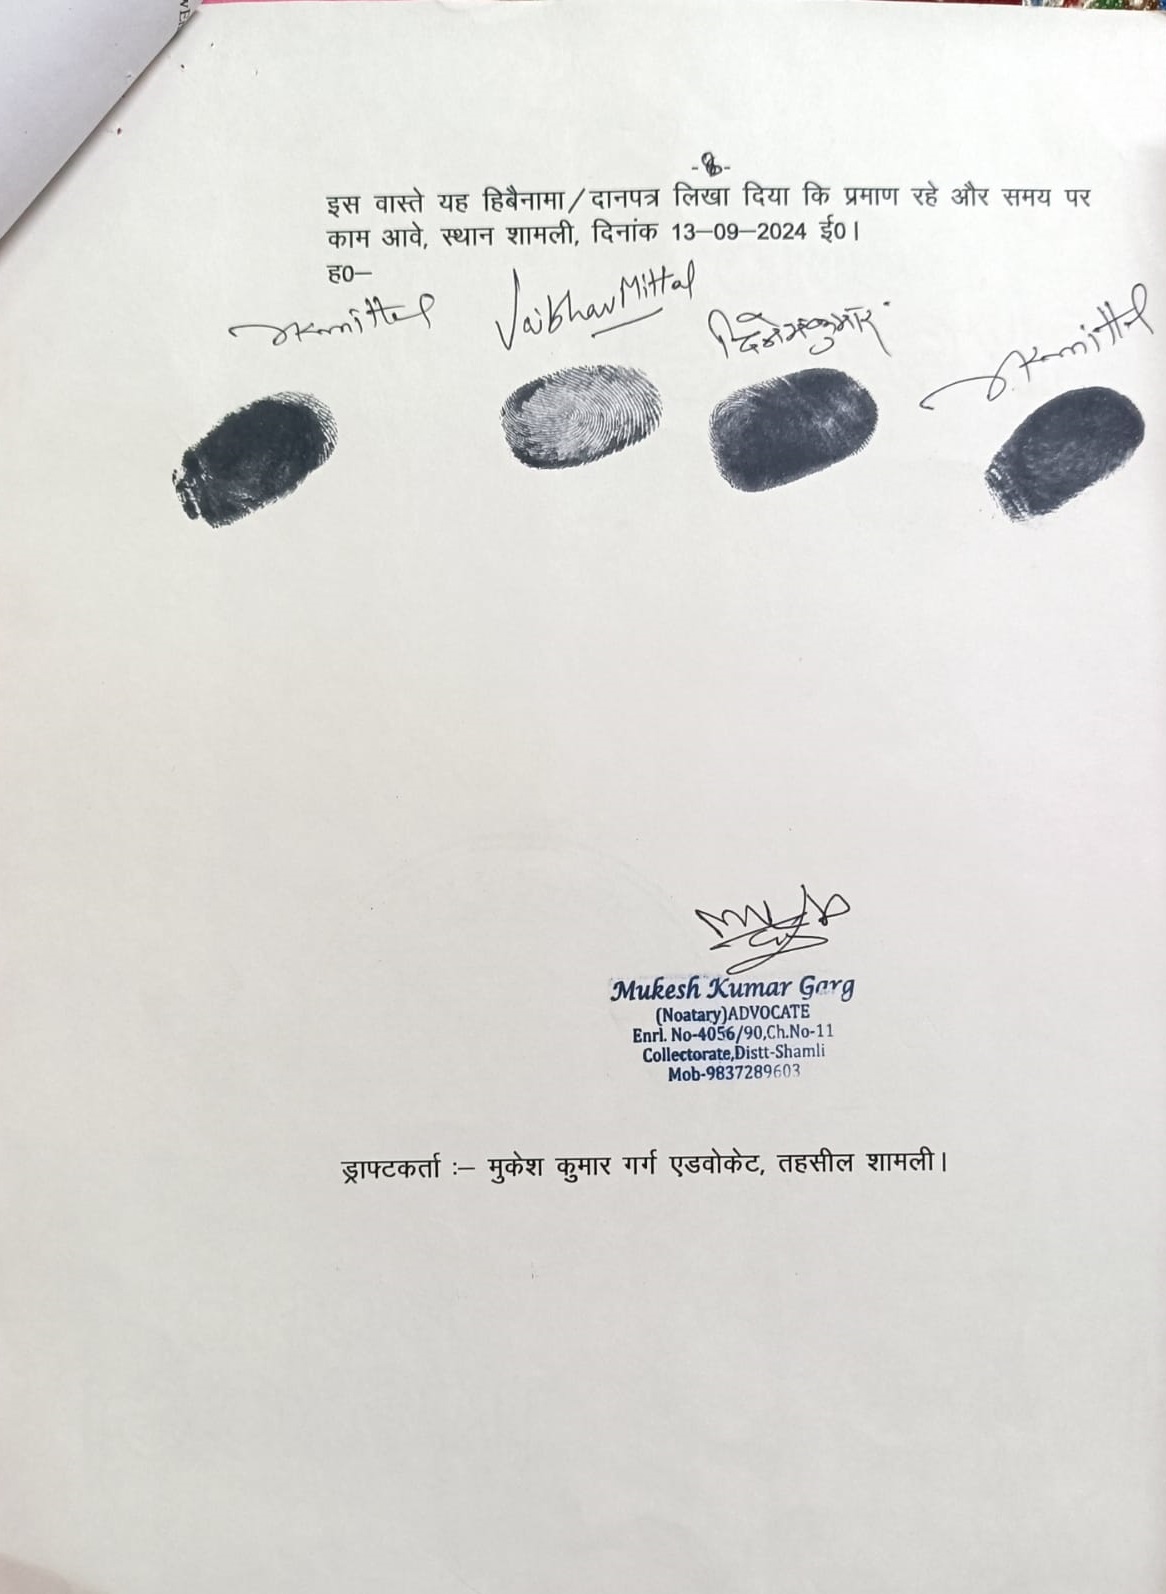 -8-
इस वास्ते यह हिबैनामा/दानपत्र लिखा दिया कि प्रमाण रहे और समय पर
काम आवे, स्थान शामली, दिनांक 13-09-2024 ई0।
ह0-
Vaibhav Mittal
दिनेश कुमार
Mukesh Kumar Garg
(Noatary)ADVOCATE
Enrl. No-4056/90,Ch.No-11
Collectorate,Distt-Shamli
Mob-9837289603
ड्राफ्टकर्ता :- मुकेश कुमार गर्ग एडवोकेट, तहसील शामली।